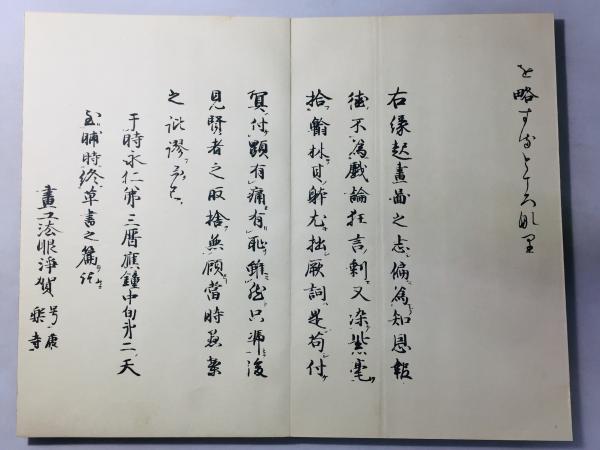 を略するところなり
右縁起畫圖之志偏為知恩報
徳不為戯論狂言剰又染紫毫
拾翰林其躰尤拙厥詞是苟付
冥付顕有痛有恥雖然只馮後
見賢者之取捨無顧當時愚案
之訛謬而已
于時永仁第三暦應鐘中旬第二天
至晡時終草書之篇訖
畫工法眼浄賀 号康樂寺